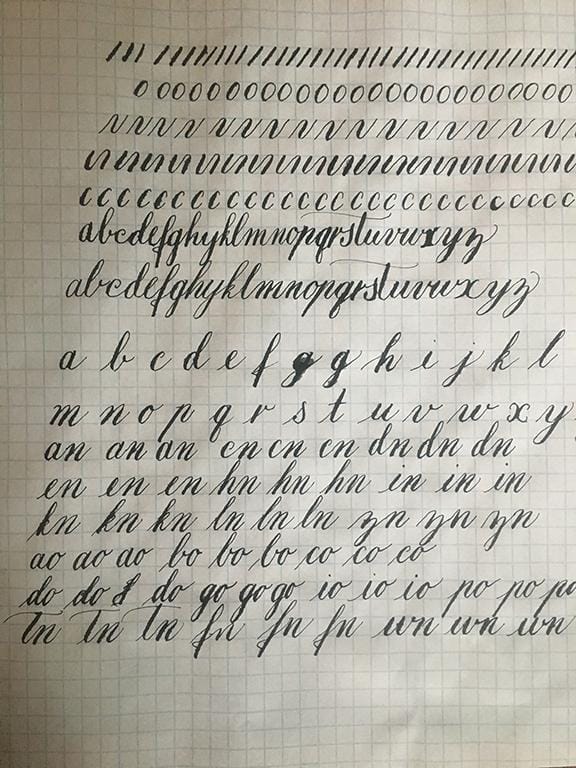 o o o o o o o o o o o o o o o o o o o o o o o o
c c c c c c c c c c c c c c c c c c c c c c c c c c
abcdefghijklmnopqrstuvwxyz
abcdefghijklmnopqrstuvwxyz
a b c d e f g g h i j k l
m n o p q r s t u v w x y
an an an cn cn cn dn dn dn
en en en hn hn hn in in in
kn kn kn ln ln ln zn zn zn
ao ao ao bo bo bo co co co
do do d do go go go io io io po po po
tn tn tn fn fn fn wn wn wn